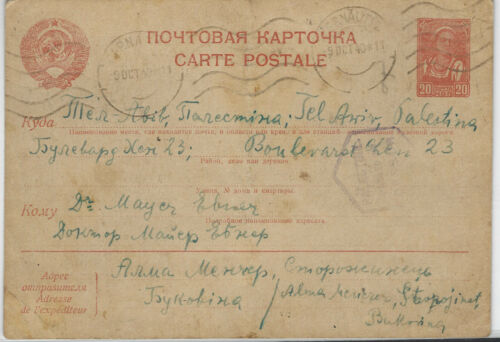 ПОЧТОВАЯ КАРТОЧКА
CARTE POSTALE
9 OCT 40
9 OCT 40 11
20 20
Куда Тел Авів, Палестіна; Tel Aviv, Palestina
Наименование места, где находится почта, и области или края, а для станций
Булевард Хен 23; Boulevard Chen 23
Район, село или деревня
Улица, № дома и квартиры
Кому Dr.
Подробное наименование адресата
Доктор Майєр Ебнер
Адрес отправителя
Adresse de l'expéditeur
Алма Менчер, Сторожинець
Буковіна / Alma